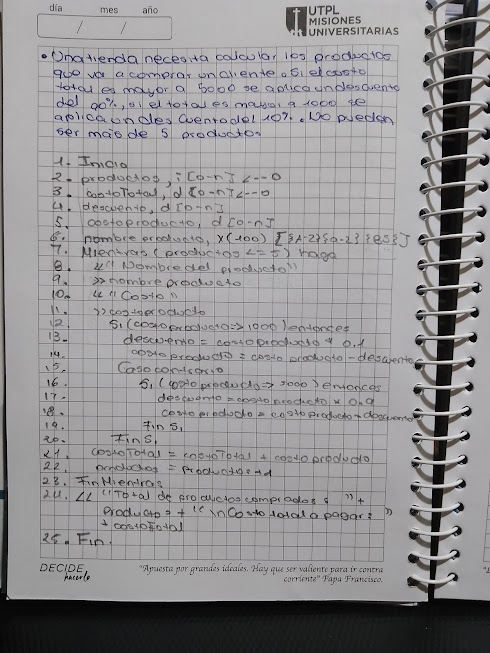 día mes año
UTPL
MISIONES
UNIVERSITARIAS
• Una tienda necesita calcular los productos
que va a comprar un cliente. Si el costo
total es mayor a 5000 se aplica un descuento
del 90%, si el total es mayor a 1000 se
aplica un descuento del 10%. No pueden
ser más de 5 productos
1- Inicio
2. productos, i [0-n] <--0
3. costoTotal, d [0-n] <--0
4. descuento, d [0-n]
5. costoproducto, d [0-n]
6. nombre producto, x(100) [{A-Z}{a-z}{BS}]
7. Mientras (productos <= 5) haga
8. << "Nombre del producto"
9. >> nombre producto
10. << "Costo"
11. >> costoproducto
12. Si (costo producto => 1000) entonces
13. descuento = costo producto * 0.1
14. costo producto = costo producto - descuento
15. Caso contrario
16. Si (costo producto => 5000) entonces
17. descuento = costo producto * 0.9
18. costo producto = costo producto - descuento
19. Fin Si
20. Fin Si
21. costoTotal = costoTotal + costo producto
22. productos = productos + 1
23. Fin Mientras
24. << "Total de productos comprados: " +
Productos + "\nCosto total a pagar: "
+ costoTotal
25. Fin.
DECIDE
hacerlo
"Apuesta por grandes ideales. Hay que ser valiente para ir contra
corriente" Papa Francisco.